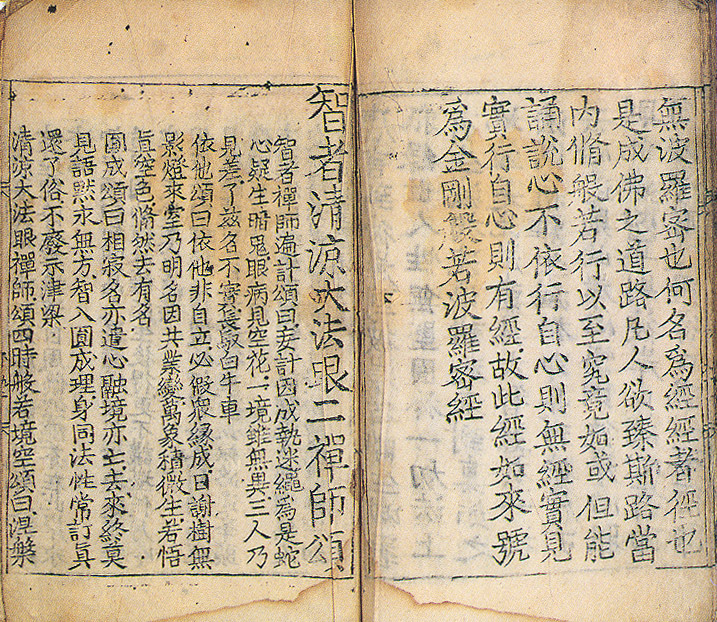 無波羅密也何名爲經經者徑也
是成佛之道路凡人欲臻斯路當
内脩般若行以至究竟如或但能
誦說心不依行自心則無經實見
實行自心則有經故此經如來號
爲金剛般若波羅密經
智者清涼大法眼二禪師頌
智者禪師遍計頌曰妄計因成執迷繩爲是蛇
心疑生暗鬼眼病見空花一境雖無異三人乃
見差了玆名不實長馭白牛車
依他頌曰依他非自立必假衆緣成日謝樹無
影燈來室乃明名因共業變萬象積微生若悟
眞空色翛然去有名
圓成頌曰相寂名亦遣心融境亦亡去來終莫
見語黙永無方智入圓成理身同法性常訂真
還了俗不廢示津梁
清涼大法眼禪師頌四時般若境空頌曰涅槃